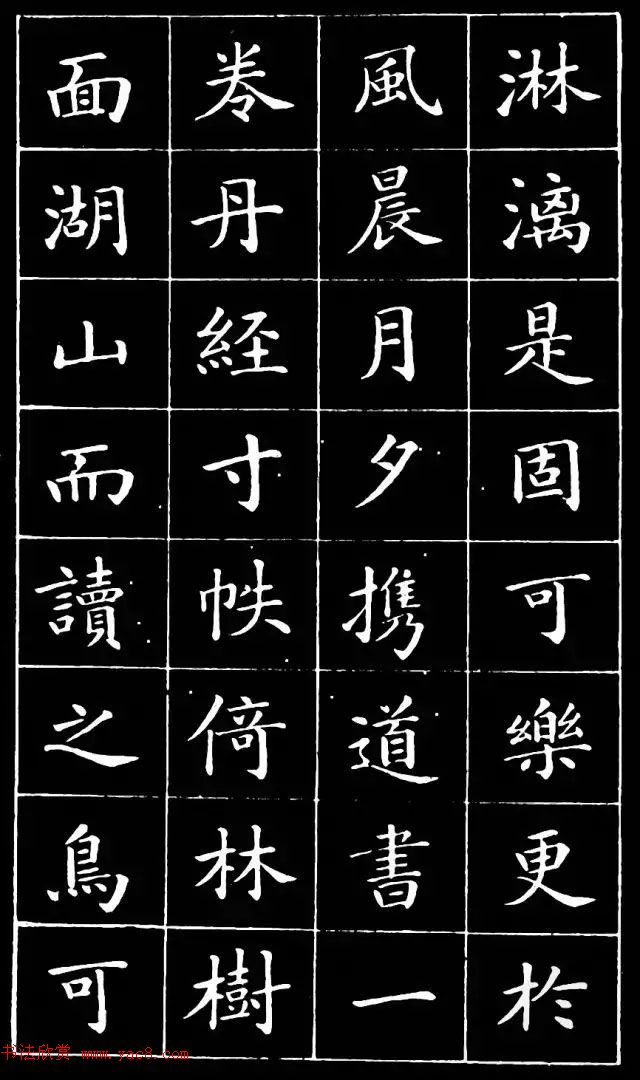 淋漓是固可樂更於
風晨月夕携道書一
卷丹經寸帙倚林樹
面湖山而讀之鳥可
书法欣赏 www.yac8.com